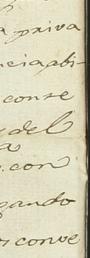 a priva
ncia, abi-
conse
s del
a
con
pando
os conve